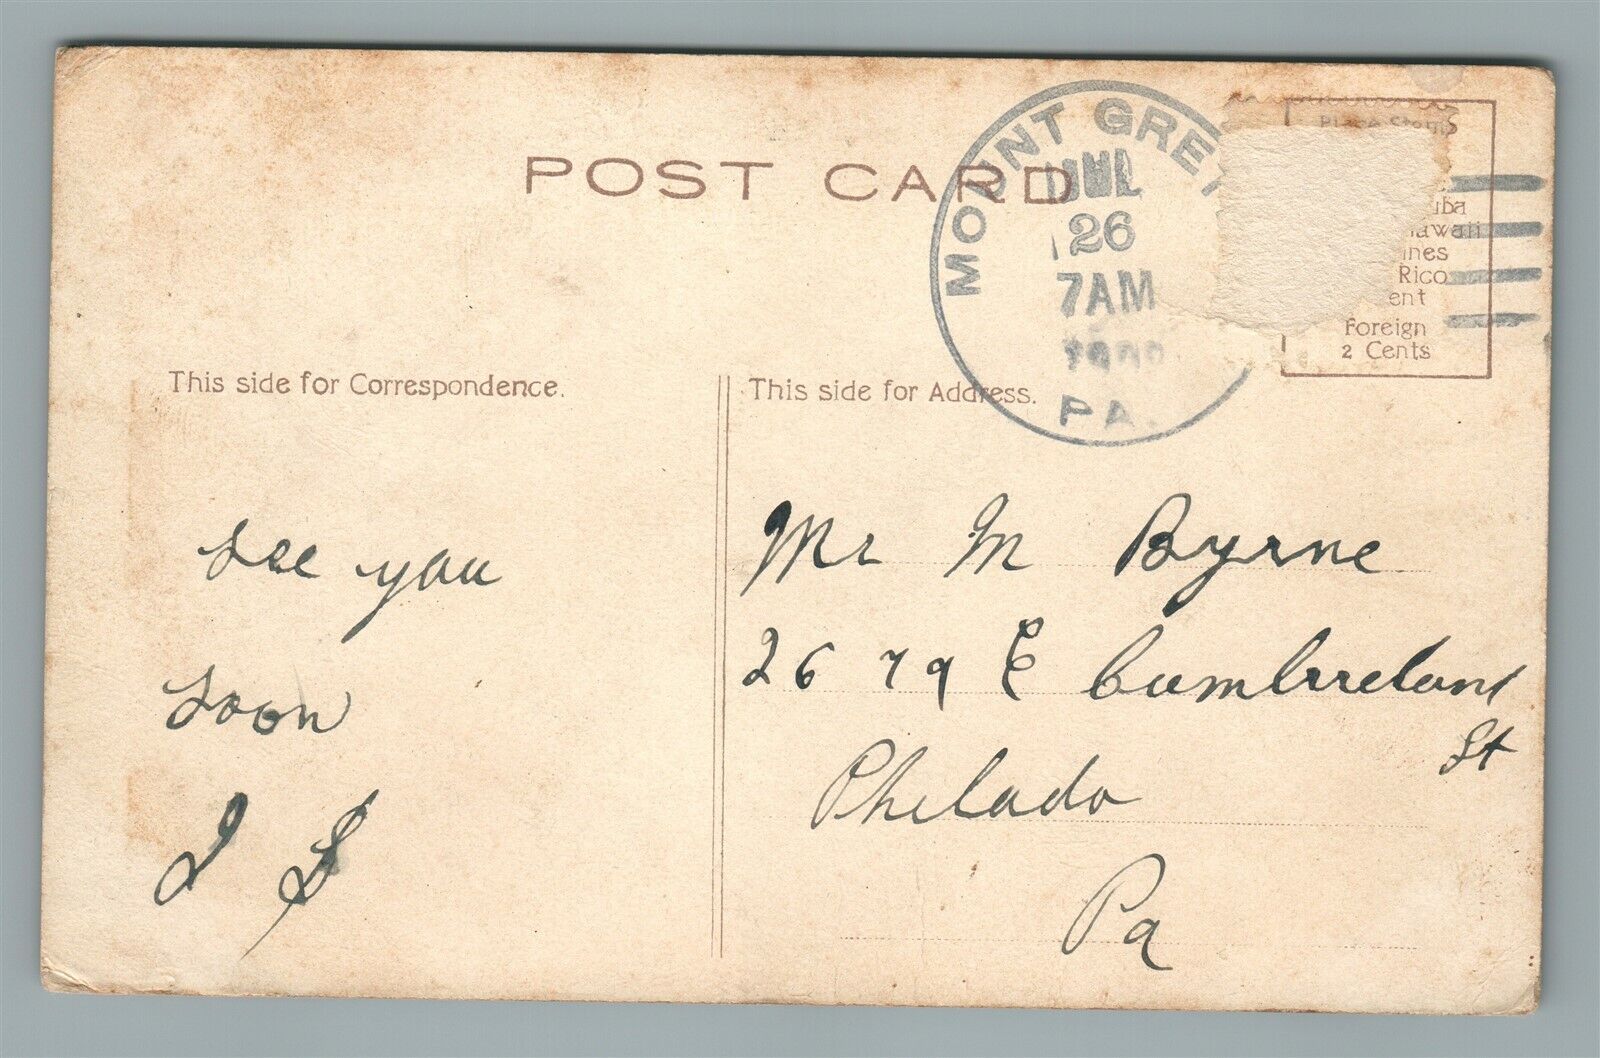 POST CARD
MOUNT GRE
JUL
26
7AM
PA.
Place Stamp
uba
awaii
ines
Rico
ent
Foreign
2 Cents
This side for Correspondence.
This side for Address.
See you
soon
I S
Mr M Byrne
2679 E Cumbrreland
St
Philada
Pa